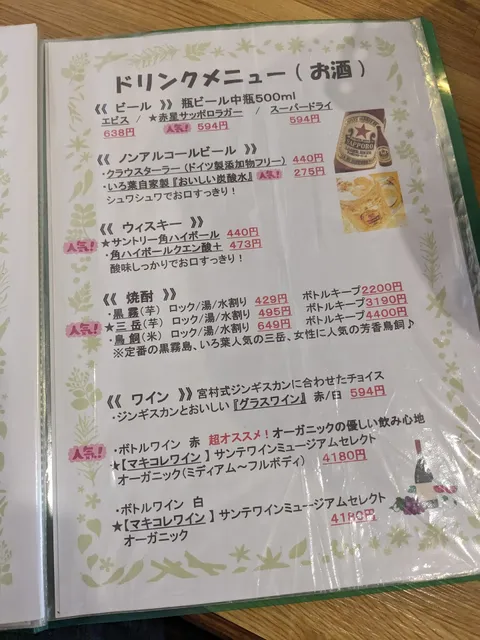 ドリンクメニュー(お酒)
《《 ビール 》》 瓶ビール中瓶500ml
エビス / ★赤星サッポロラガー / スーパードライ
638円 人気! 594円 594円
《《 ノンアルコールビール 》》
・クラウスターラー(ドイツ製添加物フリー) 440円
・いろ葉自家製『おいしい炭酸水』 人気! 275円
シュワシュワでお口すっきり!
《《 ウィスキー 》》
人気! ★サントリー角ハイボール 440円
・角ハイボールクエン酸+ 473円
酸味しっかりでお口すっきり!
《《 焼酎 》》
・黒霧(芋) ロック/湯/水割り 429円 ボトルキープ2200円
人気! ★三岳(芋) ロック/湯/水割り 495円 ボトルキープ3190円
・鳥飼(米) ロック/湯/水割り 649円 ボトルキープ4400円
※定番の黒霧島、いろ葉人気の三岳、女性に人気の芳香鳥飼♪
《《 ワイン 》》宮村式ジンギスカンに合わせたチョイス
・ジンギスカンとおいしい『グラスワイン』 赤/白 594円
・ボトルワイン 赤 超オススメ!オーガニックの優しい飲み心地
人気! ★【マキコレワイン】サンテワインミュージアムセレクト
オーガニック(ミディアム~フルボディ) 4180円
・ボトルワイン 白
★【マキコレワイン】サンテワインミュージアムセレクト
オーガニック 4180円
SAPPORO